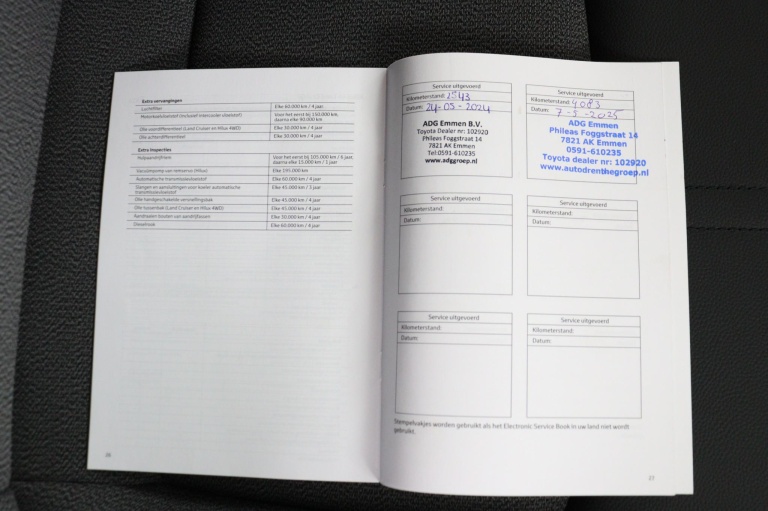 Extra vervangingen
Luchtfilter Elke 60.000 km / 4 jaar
Motorkoelvloeistof (inclusief intercooler vloeistof) Voor het eerst bij 150.000 km,
daarna elke 90.000 km
Olie voordifferentieel (Land Cruiser en Hilux 4WD) Elke 30.000 km / 4 jaar
Olie achterdifferentieel Elke 30.000 km / 4 jaar
Extra inspecties
Hulpaandrijfriem Voor het eerst bij 105.000 km / 6 jaar,
daarna elke 15.000 km / 1 jaar
Vacuümpomp van remservo (Hilux) Elke 195.000 km
Automatische transmissievloeistof Elke 60.000 km / 4 jaar
Slangen en aansluitingen voor koeler automatische
transmissievloeistof Elke 45.000 km / 3 jaar
Olie handgeschakelde versnellingsbak Elke 45.000 km / 4 jaar
Olie tussenbak (Land Cruiser en Hilux 4WD) Elke 45.000 km / 4 jaar
Aandraaien bouten van aandrijfassen Elke 30.000 km / 4 jaar
Dieselrook Elke 60.000 km / 4 jaar
26
Service uitgevoerd
Kilometerstand: 2543
Datum: 24-05-2024
ADG Emmen B.V.
Toyota Dealer nr: 102920
Phileas Foggstraat 14
7821 AK Emmen
Tel:0591-610235
www.adggroep.nl
Service uitgevoerd
Kilometerstand: 4083
Datum: 7-5-2025
ADG Emmen
Phileas Foggstraat 14
7821 AK Emmen
0591-610235
Toyota dealer nr: 102920
www.autodrenthegroep.nl
Service uitgevoerd
Kilometerstand:
Datum:
Service uitgevoerd
Kilometerstand:
Datum:
Service uitgevoerd
Kilometerstand:
Datum:
Service uitgevoerd
Kilometerstand:
Datum:
Stempelvakjes worden gebruikt als het Electronic Service Book in uw land niet wordt
gebruikt.
27